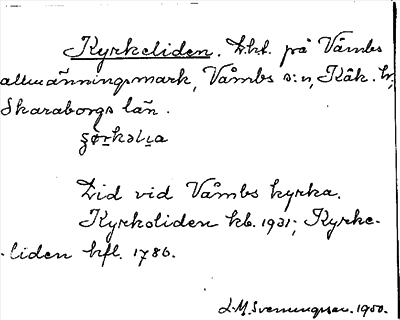 Kyrkeliden. Lht. på Våmbs
allmänningsmark, Våmbs s:n, Kåk. hd,
Skaraborgs län.
Lid vid Våmbs kyrka.
Kyrkoliden kb. 1931; Kyrke-
-liden hfl. 1786.
1950.